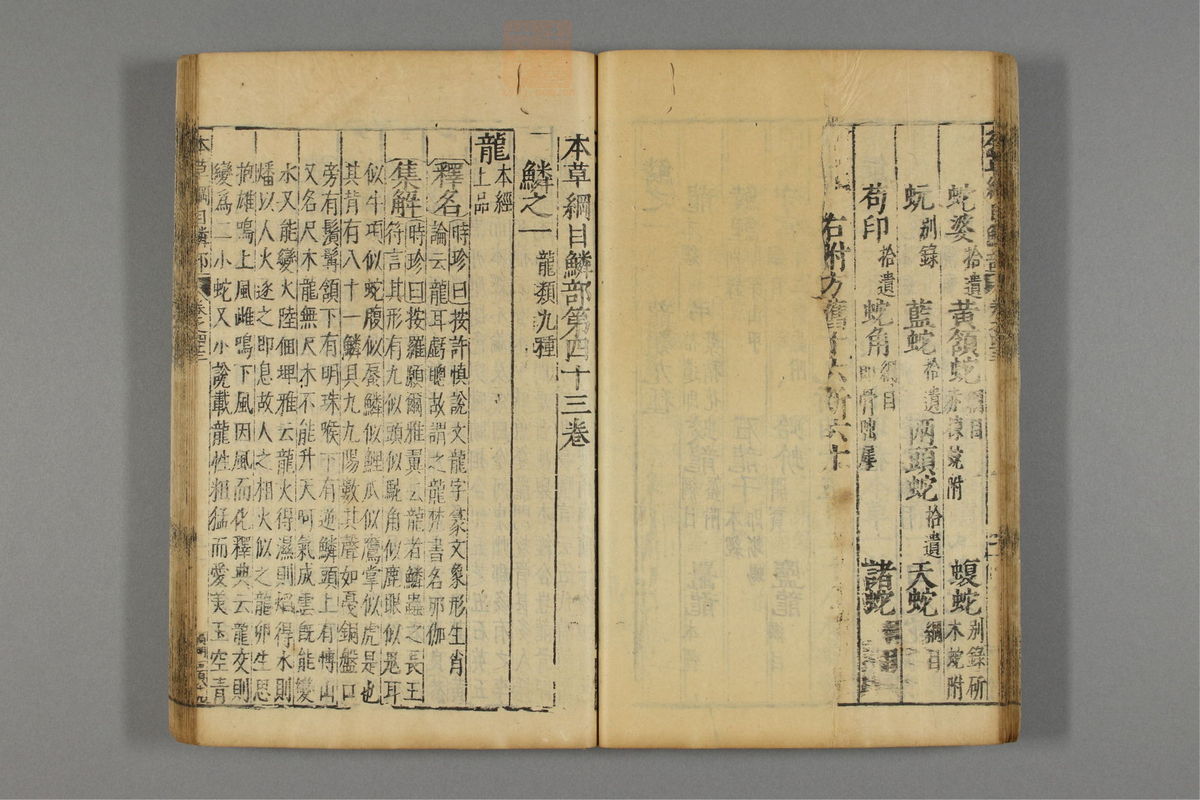 蛇婆拾遺 黃頷蛇綱目 赤楝蛇附 蝮蛇別錄 千歲
木蛇附
蚖別錄 藍蛇拾遺 兩頭蛇拾遺 天蛇綱目
苟印拾遺 蛇角綱目 即骨咄犀 諸蛇綱目
右附方舊十六新六十
本草綱目鱗部第四十三卷
鱗之一 龍類九種
龍本經上品
釋名時珍曰按許慎說文龍字篆文象形生肖
論云龍耳虧聰故謂之龍梵書名那伽
集解時珍曰按羅願爾雅翼云龍者鱗蟲之長王
符言其形有九似頭似駝角似鹿眼似鬼耳
似牛項似蛇腹似蜃鱗似鯉爪似鷹掌似虎是也
其背有八十一鱗具九九陽數其聲如戛銅盤口
旁有鬚髯頷下有明珠喉下有逆鱗頭上有博山
又名尺木龍無尺木不能升天呵氣成雲既能變
水又能變火陸佃埤雅云龍火得濕則焰得水則
燔以人火逐之即息故人之相火似之龍卵生思
抱雄鳴上風雌鳴下風因風而化釋典云龍交則
變為二小蛇又小說載龍性粗猛而愛美玉空青
本草綱目鱗部